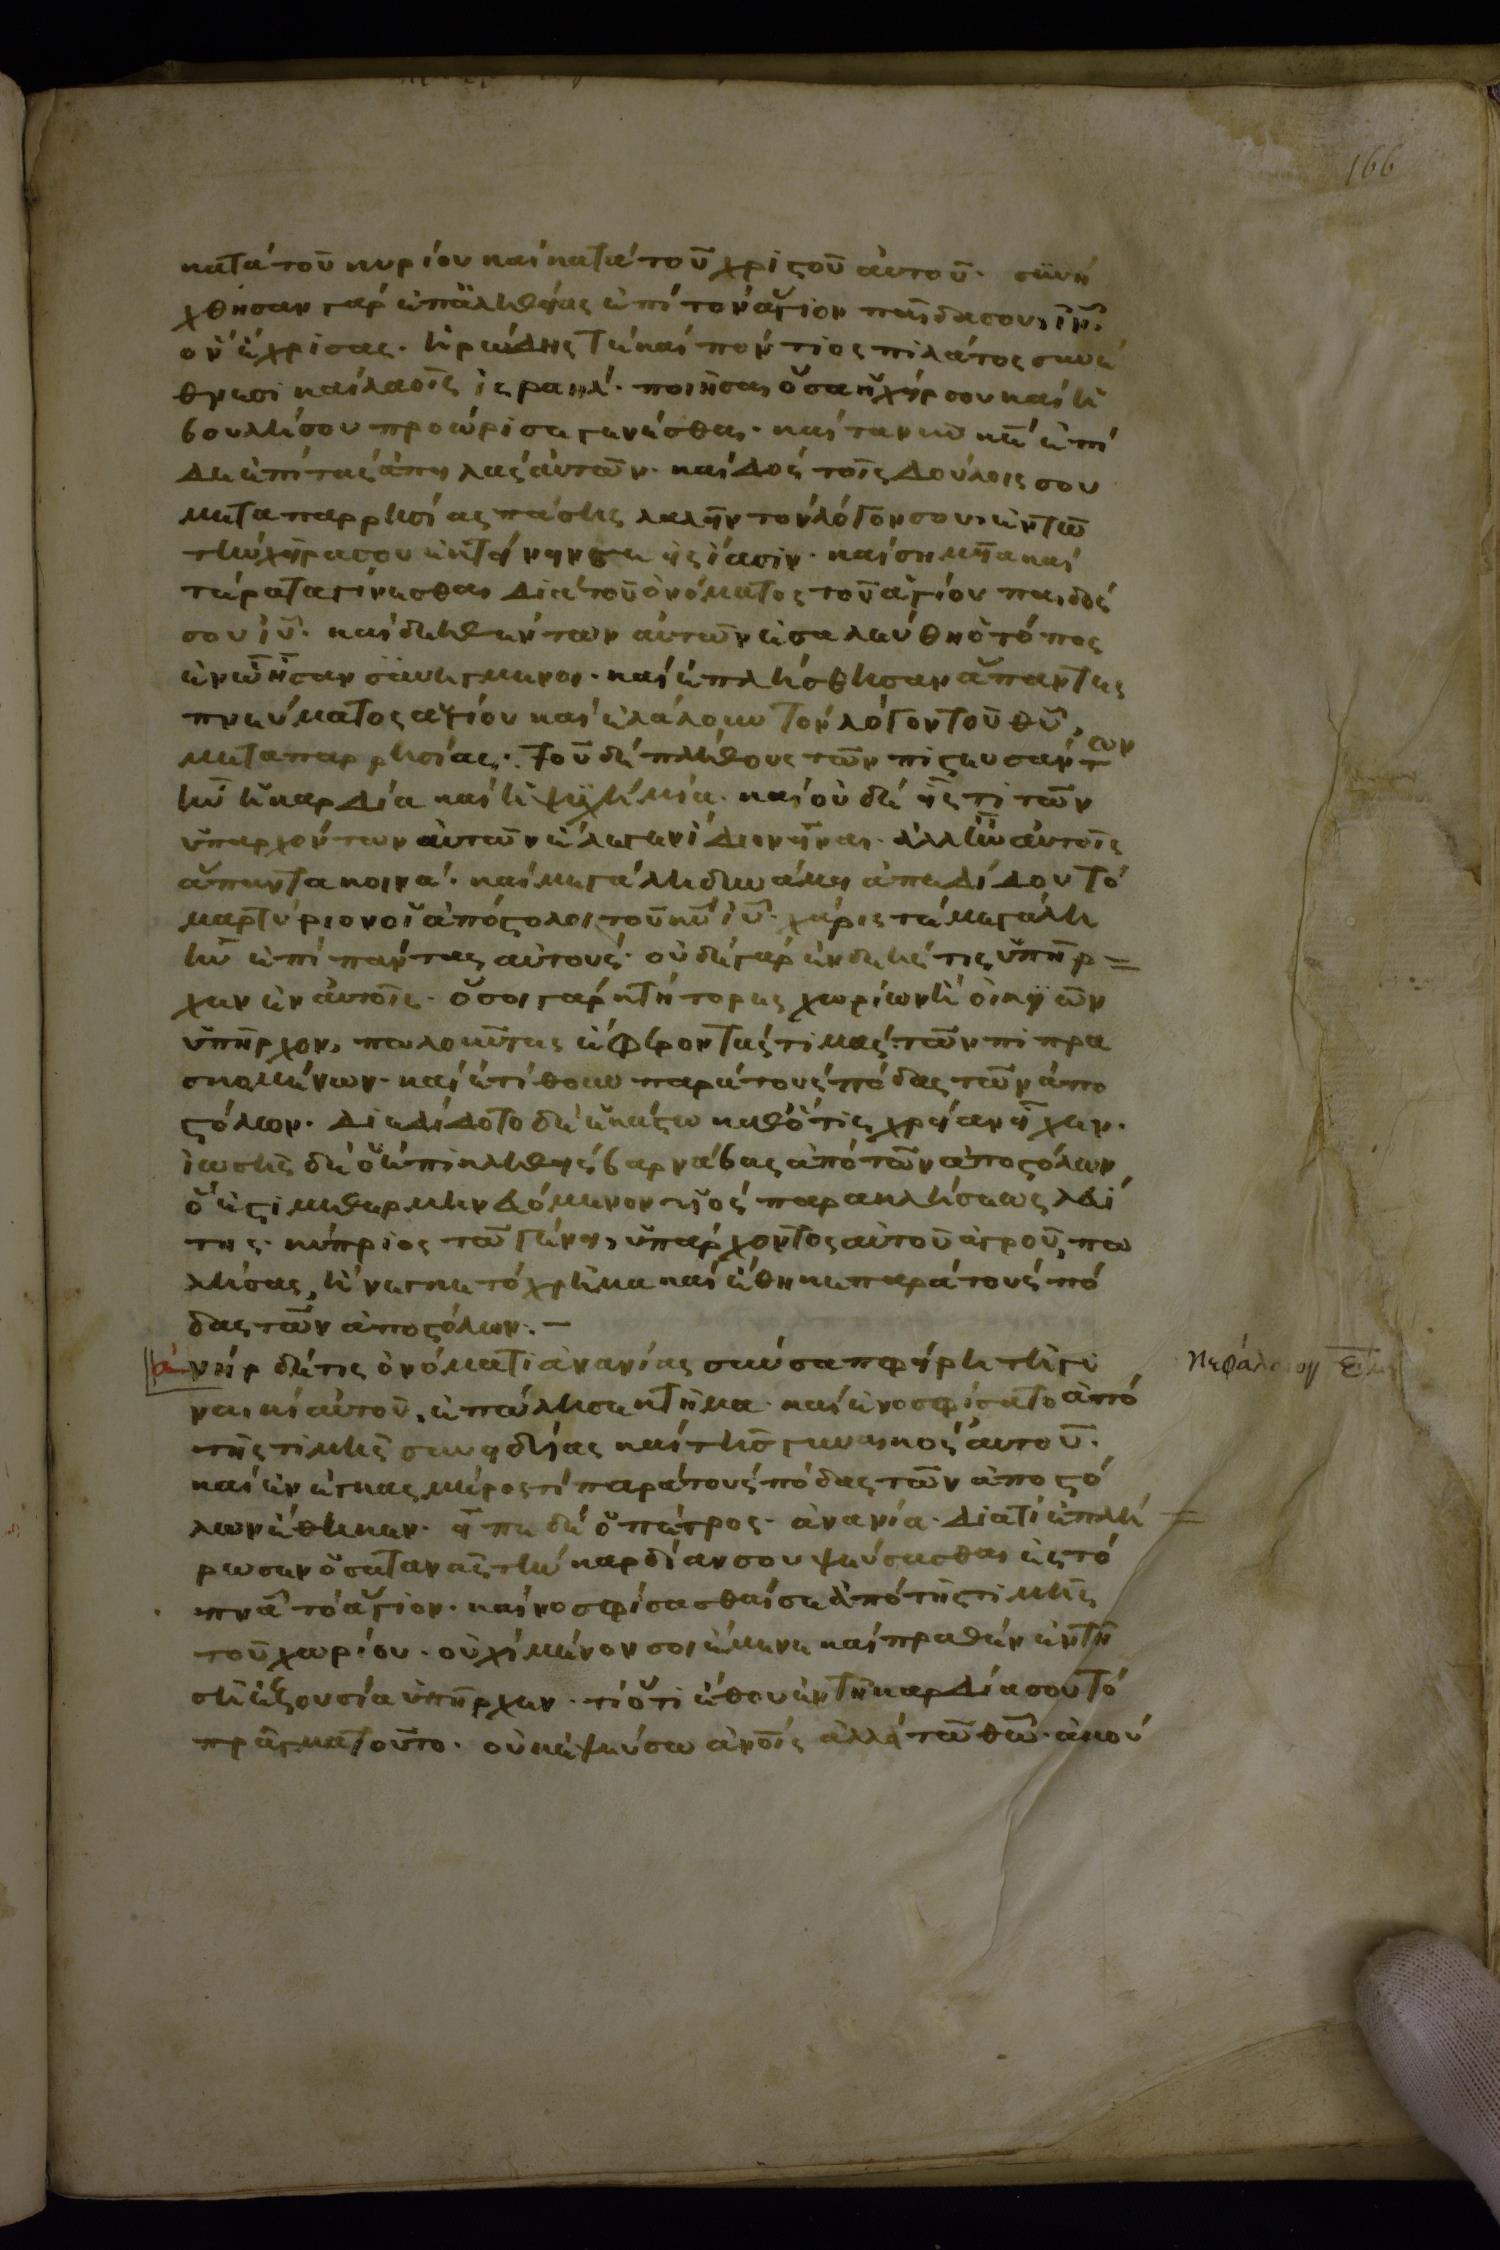 166
κατὰ τοῦ κυρίου καὶ κατὰ τοῦ χριστοῦ αὐτοῦ· συνή
χθησαν γὰρ ἐπαληθείας ἐπὶ τὸν ἅγιον παῖδα σου ἰν̅·
ὃν ἔχρισας· ἡρώδης τὲ καὶ πόντιος πιλάτος σὺν ἔ
θνεσι καὶ λαοῖς ἰσραηλ· ποιῆσαι ὅσα ἡ χείρ σου καὶ ἡ
βουλή σου προώρισε γενέσθαι· καὶ τανῦν κε̅ ἔπι
δε ἐπὶ τὰς ἀπειλὰς αὐτῶν· καὶ δὸς τοῖς δούλοις σου
μετα παρρησίας πάσης λαλεῖν τὸν λόγον σου, ἐν τῶ
τὴν χεῖρα σου ἐκτείνειν σε εἰς ἴασιν· καὶ σημεῖα καὶ
τέρατα γίνεσθαι διὰ τοῦ ὀνόματος τοῦ ἁγίου παιδός
σου ἰυ̅· καὶ δεηθέντων αὐτῶν ἐσαλεύθη ὁ τόπος
ἐν ὧ ἦσαν συνηγμένοι· καὶ ἐπλήσθησαν ἅπαντες
πνεύματος ἁγίου καὶ ἐλάλουν τὸν λόγον τοῦ θυ̅,
μετα παρρησίας· Τοῦ δὲ πλήθους τῶν πιστευσάντων
ἦν ἡ καρδία καὶ ἡ ψυχὴ μία· καὶ οὐδὲ εἷς τι τῶν
ὑπαρχόντων αὐτῶν ἔλεγεν ἴδιον εἶναι· ἀλλ ἦν αὐτοῖς
ἅπαντα κοινά· καὶ μεγάλη δυνάμει ἀπεδίδουν τὸ
μαρτύριον οἱ ἀπόστολοι τοῦ κυ̅ ἰυ̅· χάρις τὲ μεγάλη
ἦν ἐπὶ πάντας αὐτούς· οὐδὲ γὰρ ἐνδεής τις ὑπῆρ
χεν ἐν αὐτοῖς· ὅσοι γὰρ κτήτορες χωρίων ἢ οἰκειῶν
ὑπῆρχον, πωλοῦντες ἔφερον τὰς τιμὰς τῶν πιπρα
σκομένων· καὶ ἐτίθουν παρὰ τοὺς πόδας τῶν ἀπο
στόλων· διεδίδοτο δὲ ἑκάστω καθότις χρείαν εἶχεν·
ἰωσῆς δὲ ὁ ἐπικληθεὶς βαρνάβας ἀπὸ τῶν ἀποστόλων
ὅ ἐστι μεθερμηνδόμενον υἱὸς παρακλήσεως λευί
της· κύπριος τῶ γένει, ὑπάρχοντος αὐτοῦ ἀγροῦ, πω
λήσας, ἤνεγκε τὸ χρῆμα καὶ ἔθηκε παρὰ τοὺς πό
δας τῶν ἀποστόλων·
ἀνὴρ δέ τις ὀνόματι ἀνανίας σὺν σαπφείρη τῆ γυ
ναικὶ αὐτοῦ, ἐπώλησε κτῆμα· καὶ ἐνοσφίσατο ἀπὸ
τῆς τιμῆς συνειδυίας καὶ τῆς γυναικὸς αὐτοῦ·
καὶ ἐνέγκας μέρος τὶ παρὰ τοὺς πόδας τῶν ἀποστό
λων ἔθηκεν· εἶπε δὲ ὁ πέτρος· ἀνανία· διατί ἐπλή
ρωσεν ὁ σατανᾶς τὴν καρδίαν σου ψεύσασθαι εἰς τὸ
πνα̅ τὸ ἅγιον· καὶ νοσφίσασθαί σε ἀπὸ τῆς τιμῆς
τοῦ χωρίου· οὐχὶ μένον σοι ἔμενε καὶ πραθὲν ἐν τῆ
σῆ ἐξουσία ὑπῆρχεν· τί ὅτι ἔθου ἐν τῆ καρδία σου τὸ
πρᾶγμα τοῦτο· οὐκ ἐψεύσω ἀνοῖς ἀλλὰ τῶ θῶ· ἀκού
κεφάλαιον